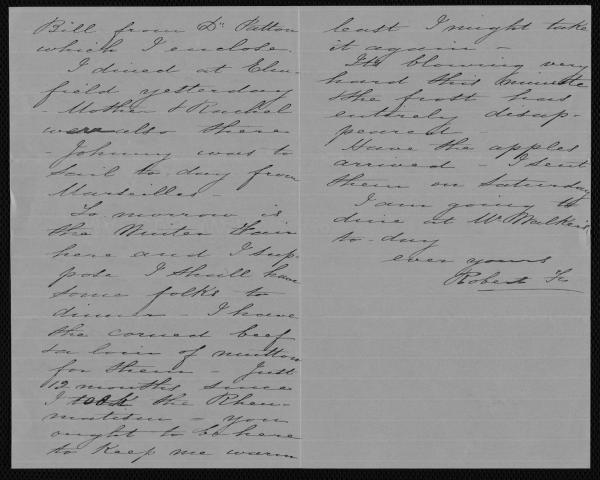 Bill from Dr Patton
which I enclose.
I dined at Elm-
field yesterday
- Mother & Rachel
were also there
- Johnny was to
sail to-day from
Marseilles -
To-morrow is
the Winter Fair
here and I sup-
pose I shall have
some folks to
dinner - I have
the corned beef
& a loin of mutton
for them - Just
12 months since
I took the Rheu-
matism - you
ought to be here
to keep me warm
least I might take
it again -
It's blowing very
hard this minute
& the frost has
entirely disap-
peared -
Have the apples
arrived - I sent
them on Saturday
I am going to
dine at Mr Walker's
to-day
ever yours
Robert